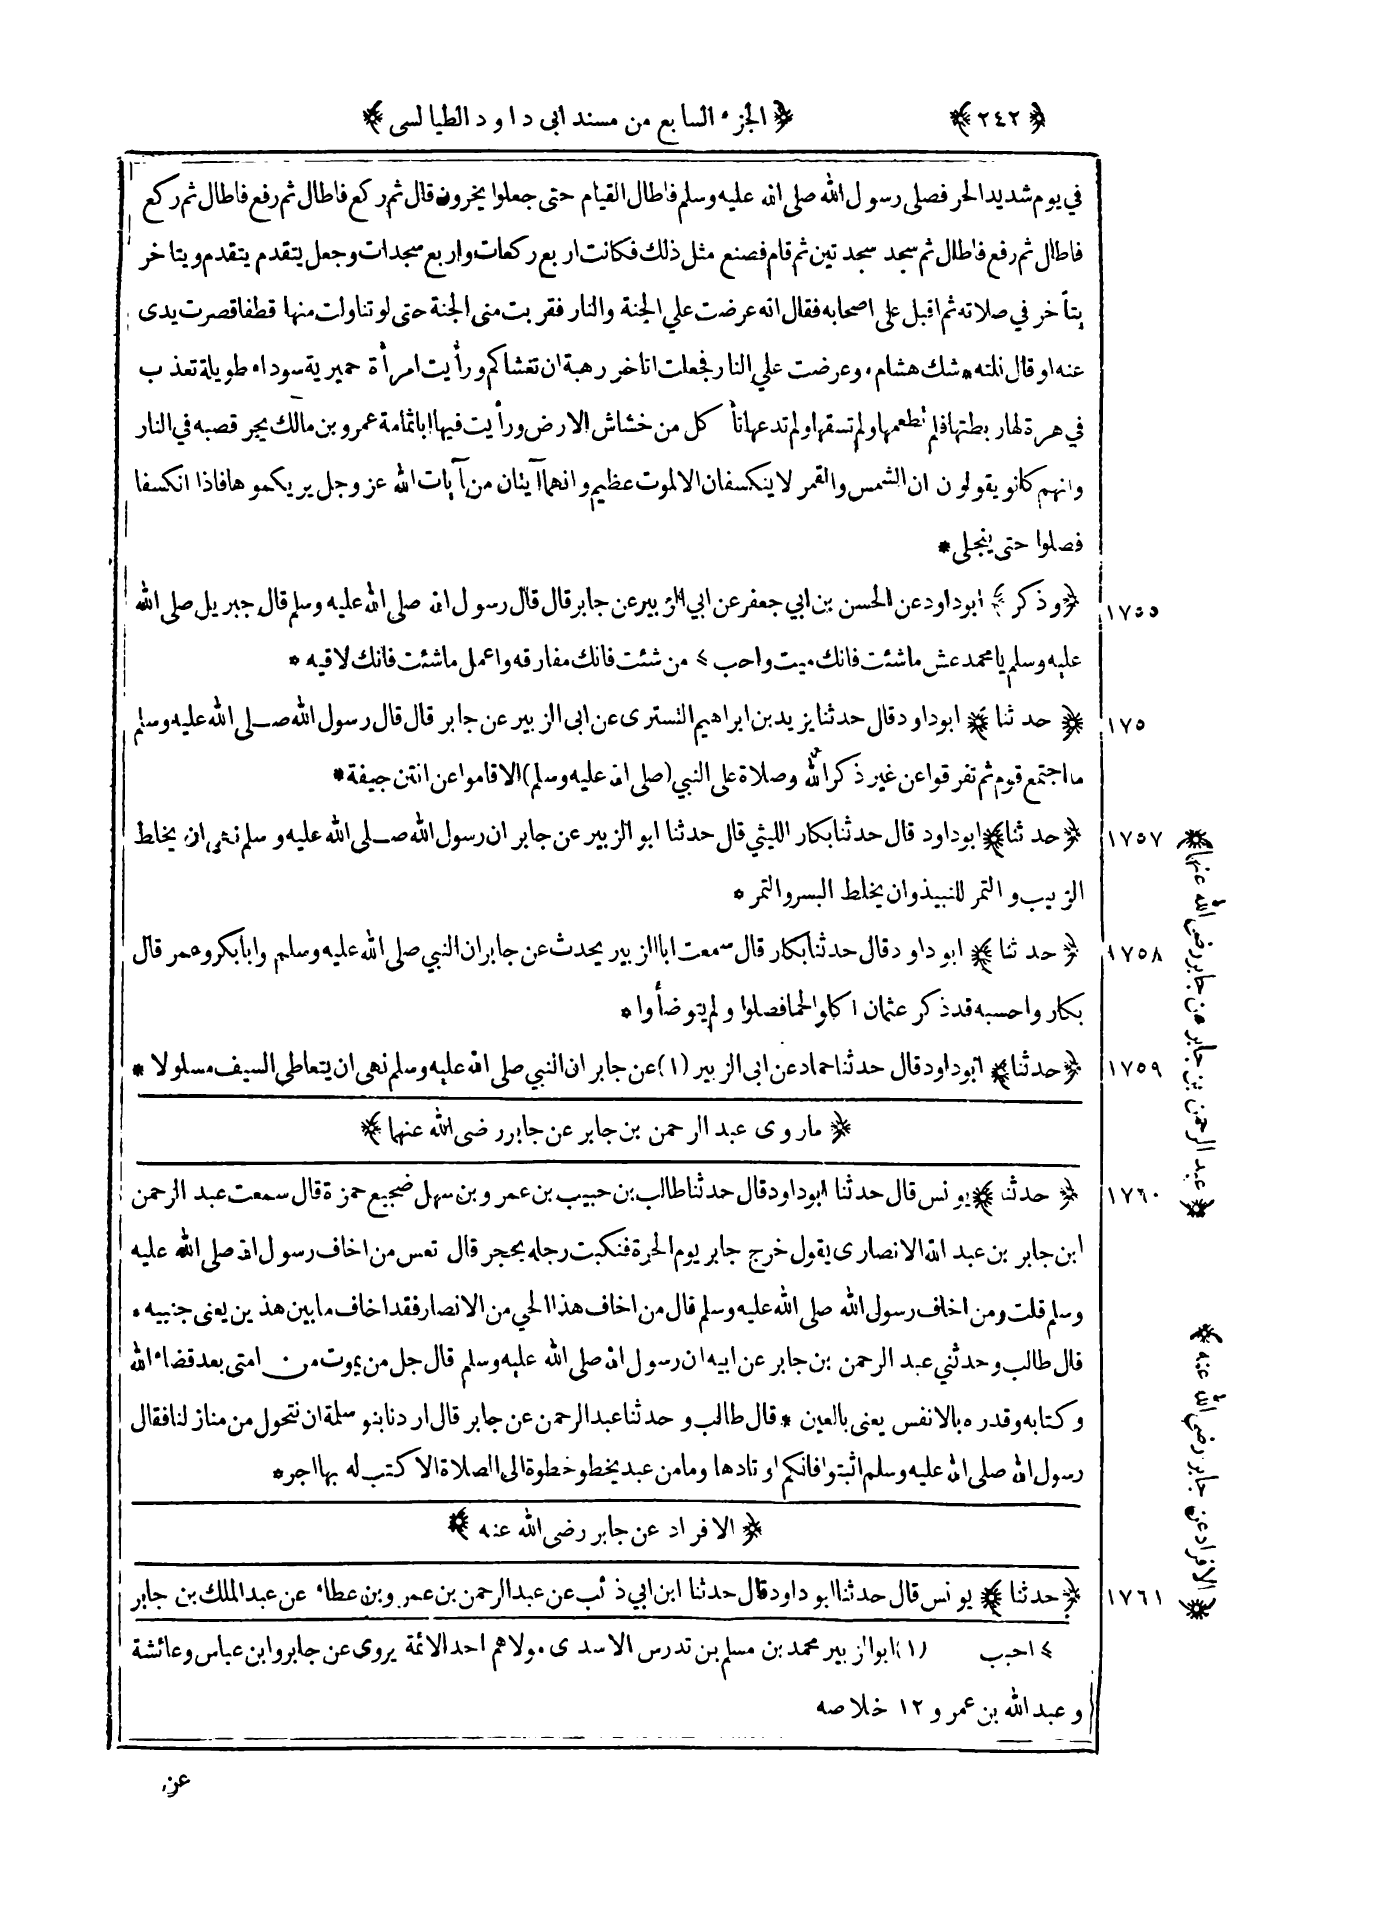 ﴿٢٤٢﴾ ﴿الجزء السابع من مسند ابى داود الطيالسى﴾
في يوم شديد الحر فصلى رسول الله صلى الله عليه وسلم فاطال القيام حتى جعلوا يخرون قال ثم ركع فاطال ثم رفع فاطال ثم ركع
فاطال ثم رفع فاطال ثم سجد سجدتين ثم قام فصنع مثل ذلك فكانت اربع ركعات واربع سجدات وجعل يتقدم يتقدم ويتاخر
يتأخر في صلاته ثم اقبل على اصحابه فقال انه عرضت علي الجنة والنار فقربت منى الجنة حتى لو تناولت منها قطفا قصرت يدى
عنه او قال نلته * شك هشام . وعرضت علي النار فجعلت اتاخر رهبة ان تغشاكم ورأيت امرأة حميرية سوداء طويلة تعذب
في هرة لها ربطتها فلم تطعمها ولم تسقها ولم تدعها تأ كل من خشاش الارض ورأيت فيها ابا ثمامة عمرو بن مالك يجر قصبه في النار
وانهم كانو يقولون ان الشمس والقمر لا ينكسفان الا لموت عظيم وانهما آيتان من آيات الله عز وجل يريكموها فاذا انكسفا
فصلوا حتى ينجلى *
١٧٥٥ ﴿وذكر﴾ ابو داود عن الحسن بن ابي جعفر عن ابي الزبير عن جابر قال قال رسول الله صلى الله عليه وسلم قال جبريل صلى الله
عليه وسلم يا محمد عش ما شئت فانك ميت واحب > من شئت فانك مفارقه واعمل ما شئت فانك لاقيه *
١٧٥ ﴿حدثنا﴾ ابو داود قال حدثنا يزيد بن ابراهيم التسترى عن ابى الزبير عن جابر قال قال رسول الله صلى الله عليه وسلم
ما اجتمع قوم ثم تفرقوا عن غير ذكر الله وصلاة على النبي (صلى الله عليه وسلم) الا قاموا عن انتن جيفة *
١٧٥٧ ﴿حدثنا﴾ ابو داود قال حدثنا بكار الليثي قال حدثنا ابو الزبير عن جابر ان رسول الله صلى الله عليه وسلم نهى ان يخلط
الزبيب و التمر للنبيذ وان يخلط البسر والتمر *
١٧٥٨ ﴿حدثنا﴾ ابو داود قال حدثنا بكار قال سمعت ابا الزبير يحدث عن جابر ان النبي صلى الله عليه وسلم وابا بكر وعمر قال
بكار واحسبه قد ذكر عثمان اكلوا لحما فصلوا ولم يتوضأوا *
١٧٥٩ ﴿حدثنا﴾ ابو داود قال حدثنا حماد عن ابى الزبير (١) عن جابر ان النبي صلى الله عليه وسلم نهى ان يتعاطى السيف مسلولا *
﴿ما روى عبد الرحمن بن جابر عن جابر رضى الله عنهما﴾
١٧٦٠ ﴿حدثنا﴾ يونس قال حدثنا ابو داود قال حدثنا طالب بن حبيب بن عمرو بن سهل ضجيع حمزة قال سمعت عبد الرحمن
ابن جابر بن عبد الله الانصارى يقول خرج جابر يوم الحرة فنكبت رجله بحجر قال تعس من اخاف رسول الله صلى الله عليه
وسلم قلت ومن اخاف رسول الله صلى الله عليه وسلم قال من اخاف هذا الحي من الانصار فقد اخاف ما بين هذين يعنى جنبيه .
قال طالب وحدثني عبد الرحمن بن جابر عن ابيه ان رسول الله صلى الله عليه وسلم قال جل من يموت من امتى بعد قضاء الله
وكتابه وقدره بالانفس يعنى بالعين * قال طالب و حدثنا عبد الرحمن عن جابر قال اردنا بنو سلمة ان نتحول من منازلنا فقال
رسول الله صلى الله عليه وسلم اثبتوا فانكم اوتادها وما من عبد يخطو خطوة الى الصلاة الا كتب له بها اجر *
﴿الافراد عن جابر رضى الله عنه﴾
١٧٦١ ﴿حدثنا﴾ يونس قال حدثنا ابو داود قال حدثنا ابن ابي ذئب عن عبد الرحمن بن عمرو بن عطاء عن عبد الملك بن جابر
> احبب (١) ابو الزبير محمد بن مسلم بن تدرس الاسدى مولاهم احد الائمة يروى عن جابر وابن عباس وعائشة
و عبد الله بن عمرو ١٢ خلاصه
عن
﴿عبد الرحمن بن جابر عن جابر رضى الله عنهما﴾
﴿الافراد عن جابر رضى الله عنه﴾